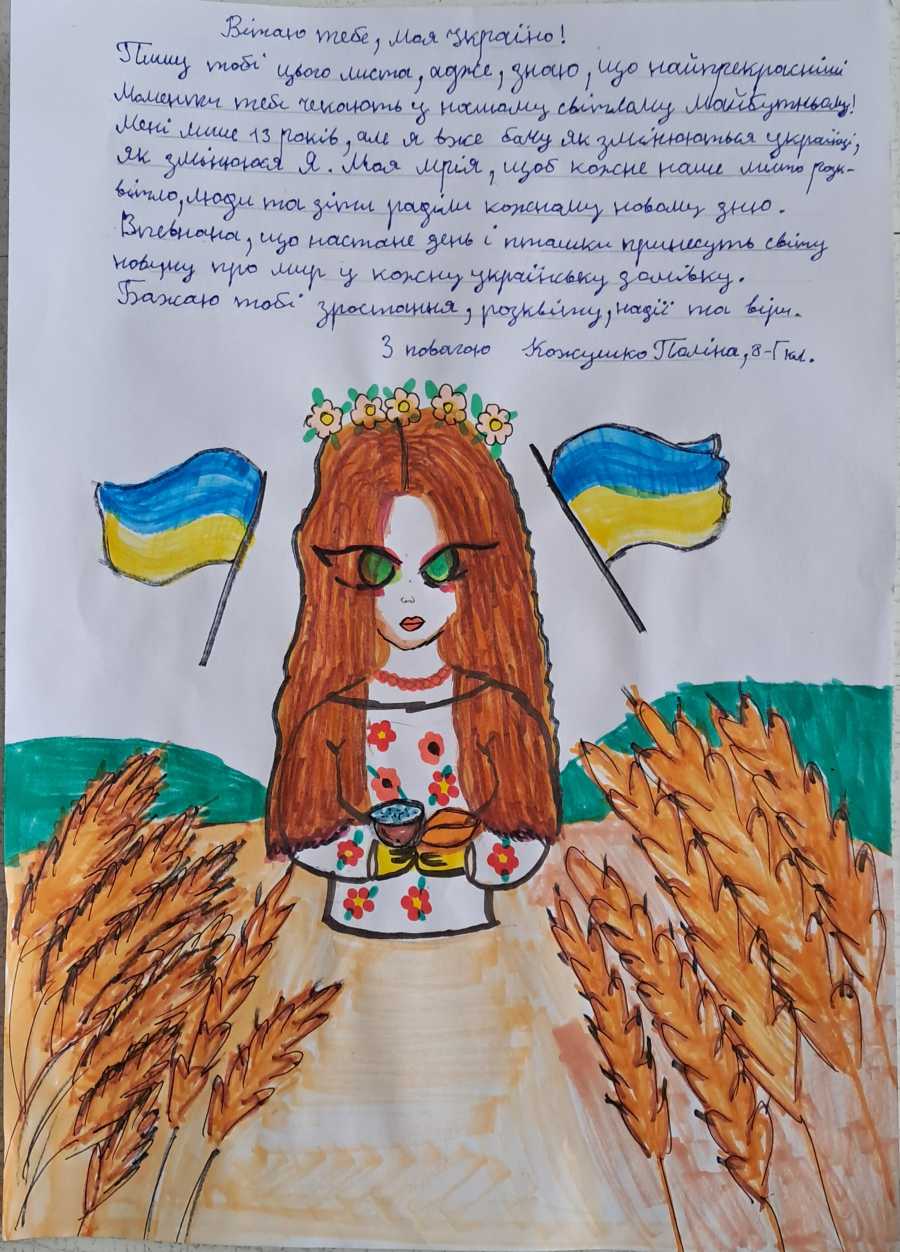 Вітаю тебе, моя Україно!
Пишу тобі цього листа, адже, знаю, що найпрекрасніші
моменти тебе чекають у нашому світлому майбутньому!
Мені лише 13 років, але я вже бачу як змінюються українці,
як змінююся Я. Моя мрія, щоб кожне наше місто розк-
вітло, люди та діти раділи кожному новому дню.
Впевнана, що настане день і пташки принесуть світу
новину про мир у кожну українську домівку.
Бажаю тобі зростання, розквіту, надії та віри.
З повагою Кожушко Поліна, 8-Г кл.